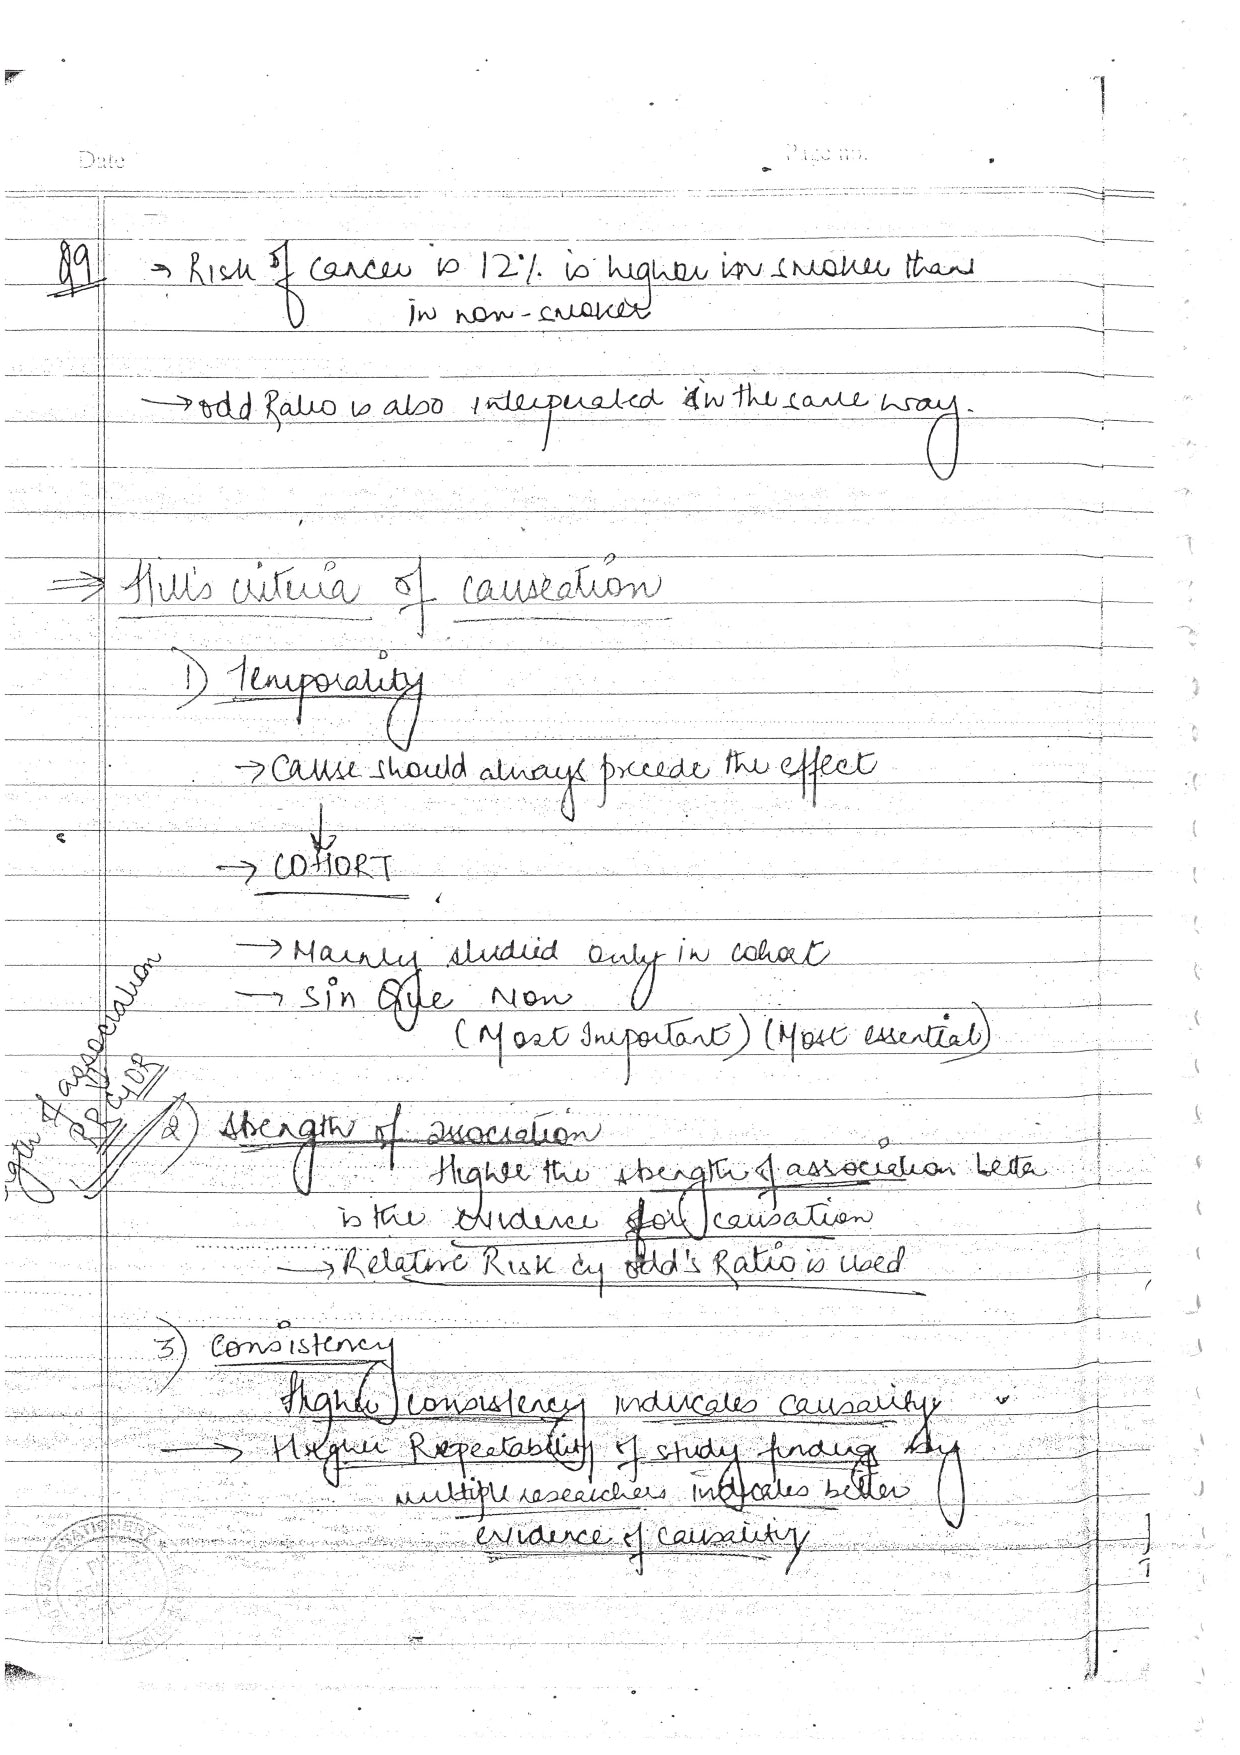 Date
Page no.
Q9 → Risk of cancer is 12% is higher in smoker than
in non-smoker
→ odd Ratio is also interperated in the same way.
⇒ Hill's criteria of causeation
1) Temporality
→ Cause should always precede the effect
↓
→ COHORT
→ Mainly studied only in cohort
→ Sin Que Non
(Most Important) (Most essential)
of association
RR OR
2) Strength of association
Higher the strength of association better
is the evidence for causation
→ Relative Risk odd's Ratio is used
3) Consistency
Higher consistency indicates causality
→ Higher Repeatability of study finding by
multiple researchers indicates better
evidence of causality